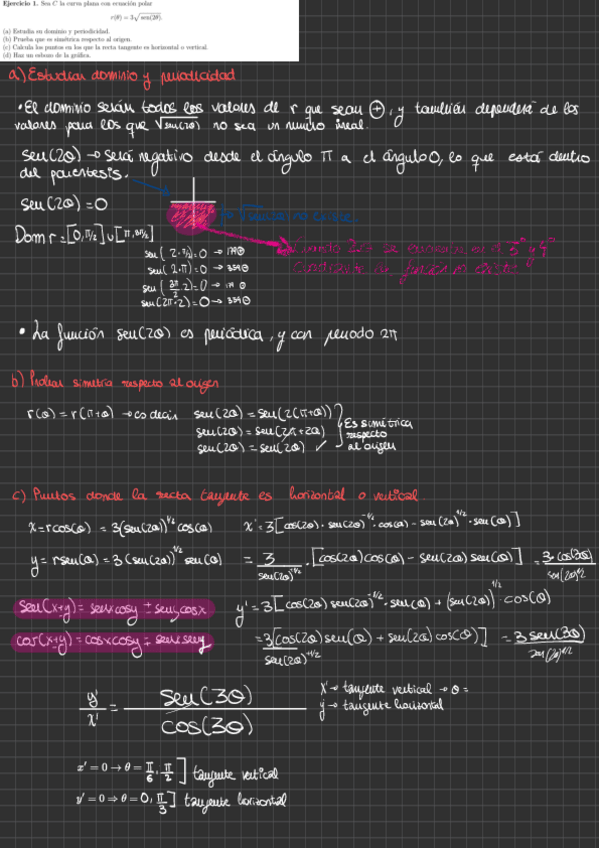 Ejercicio 1. Sea C la curva plana con ecuación polar
r(θ) = 3√sen(2θ).
(a) Estudia su dominio y periodicidad.
(b) Prueba que es simétrica respecto al origen.
(c) Calcula los puntos en los que la recta tangente es horizontal o vertical.
(d) Haz un esbozo de la gráfica.
a) Estudiar dominio y periodicidad
• El dominio serán todos los valores de r que sean ⊕, y también dependerá de los
valores para los que √sen(2θ) no sea un número irreal.
sen(2θ) → Será negativo desde el ángulo π a el ángulo 0, lo que está dentro
del paréntesis.
sen(2θ)=0
Dom r = [0,π/2] ∪ [π, 3π/2]
Cuando 2θ se encuentra en el 3º y 4º
cuadrante la función no existe
sen(2·π/2)=0
sen(2·π)=0
sen(3π/2 ·2)=0
sen(2π·2)=0
• La función sen(2θ) es periódica, y con periodo 2π
b) Probar simetría respecto al origen
r(θ) = r(π+θ) → es decir sen(2θ) = sen(2(π+θ))
sen(2θ) = sen(2π+2θ)
sen(2θ) = sen(2θ) ✓
Es simétrica
respecto
al origen
c) Puntos donde la recta tangente es horizontal o vertical.
x = r cos(θ) = 3(sen(2θ))^1/2 cos(θ) x' = 3[cos(2θ)·sen(2θ)^-1/2·cos(θ) - sen(2θ)^1/2·sen(θ)]
y = r sen(θ) = 3(sen(2θ))^1/2 sen(θ) = 3/sen(2θ)^1/2 ·[cos(2θ)cos(θ) - sen(2θ)sen(θ)] = 3cos(3θ)/sen(2θ)^1/2
sen(x+y) = senxcosy ± senycosx y' = 3[cos(2θ)sen(2θ)^-1/2·sen(θ) + (sen(2θ))^1/2·cos(θ)
cos(x+y) = cosxcosy ∓ senxseny = 3[cos(2θ)sen(θ) + sen(2θ)cos(θ)]/sen(2θ)^+1/2 = 3sen(3θ)/sen(2θ)^1/2
y'/x' = sen(3θ)/cos(3θ)
x' → tangente vertical → θ =
y' → tangente horizontal
x' = 0 → θ = π/6, π/2] tangente vertical
y' = 0 ⇒ θ = 0, π/3] tangente horizontal